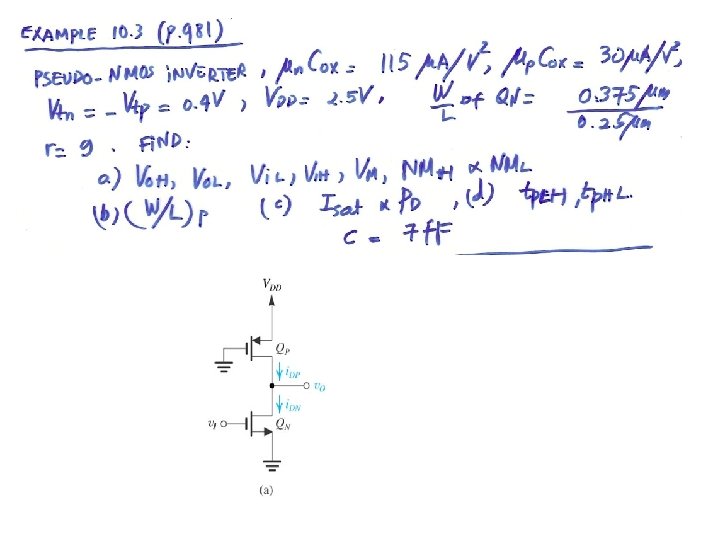 EXAMPLE 10.3 (P.981)
PSEUDO-NMOS INVERTER, μn Cox = 115 μA/V², μp Cox = 30 μA/V²,
Vtn = -Vtp = 0.4V, VDD = 2.5V. W/L of QN = 0.375μm/0.25μm
r = 9. FIND:
a) VOH, VOL, ViL, VIH, VM, NMH & NML
(b) (W/L)p (c) Isat & PD, (d) tpLH, tpHL.
C = 7fF
VDD
QP
iDP
vO
iDN
vI QN
(a)